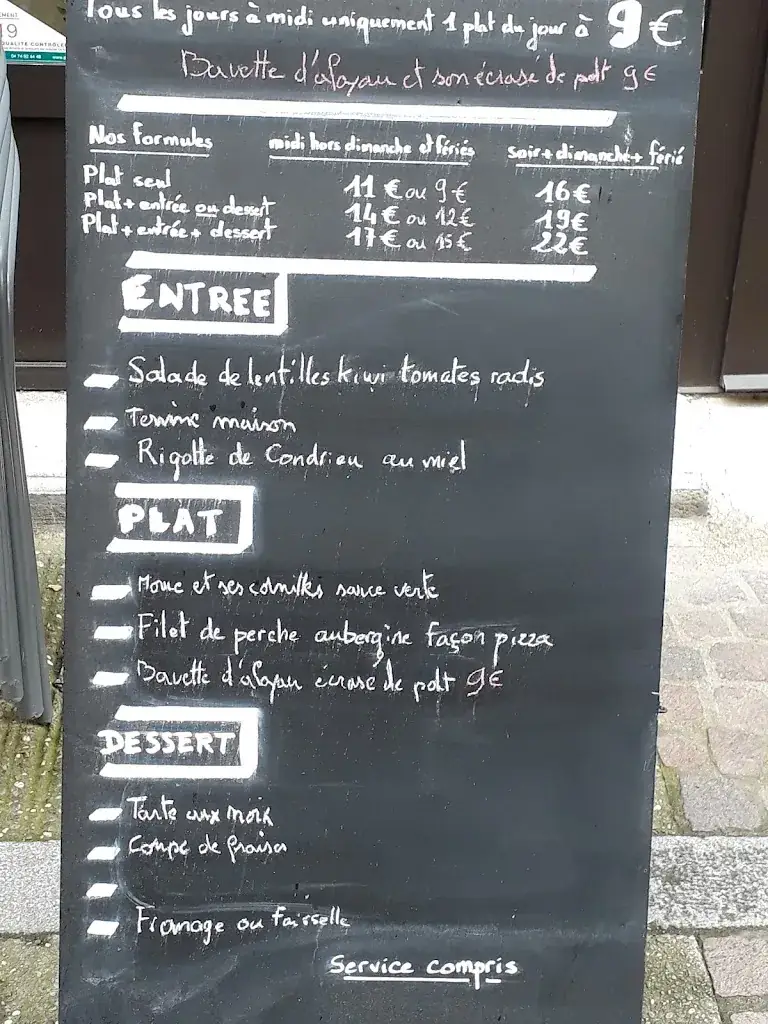 MENT
19
QUALITE CONTRÔLÉE
Tous les jours à midi uniquement 1 plat du jour à 9 €
Bavette d'aloyau et son écrasé de pdt 9 €
Nos formules midi hors dimanche et fériés soir + dimanche + férié
Plat seul 11 € ou 9 € 16 €
Plat + entrée ou dessert 14 € ou 12 € 19 €
Plat + entrée + dessert 17 € ou 15 € 22 €
ENTREE
Salade de lentilles kiwi tomates radis
Terrine maison
Rigotte de Condrieu au miel
PLAT
et ses sauce verte
Filet de perche aubergine façon pizza
Bavette d'aloyau écrasé de pdt 9 €
DESSERT
Tarte aux noix
Coupe de fraises
Fromage ou faisselle
Service compris